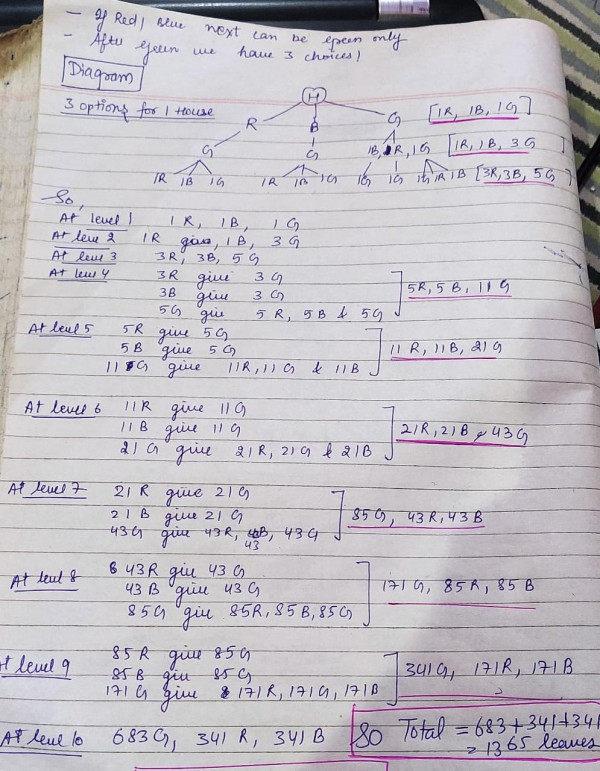 - If Red, Blue next can be green only
- After green we have 3 choices!
Diagram
3 options for 1 House
H
R B G [1R, 1B, 1G]
G G 1B, 1R, 1G [1R, 1B, 3G]
1R 1B 1G 1R 1B 1G 1G 1G 1G 1R 1B [3R, 3B, 5G]
So,
At level 1 1R, 1B, 1G
At level 2 1R gives, 1B, 3G
At level 3 3R, 3B, 5G
At level 4 3R give 3G
3B give 3G
5G give 5R, 5B & 5G
5R, 5B, 11G
At level 5 5R give 5G
5B give 5G
11G give 11R, 11G & 11B
11R, 11B, 21G
At level 6 11R give 11G
11B give 11G
21G give 21R, 21G & 21B
21R, 21B, 43G
At level 7 21R give 21G
21B give 21G
43G give 43R, 43B, 43G
85G, 43R, 43B
At level 8 43R give 43G
43B give 43G
85G give 85R, 85B, 85G
171G, 85R, 85B
At level 9 85R give 85G
85B give 85G
171G give 171R, 171G, 171B
341G, 171R, 171B
At level 10 683G, 341R, 341B
So Total = 683+341+341
= 1365 leaves